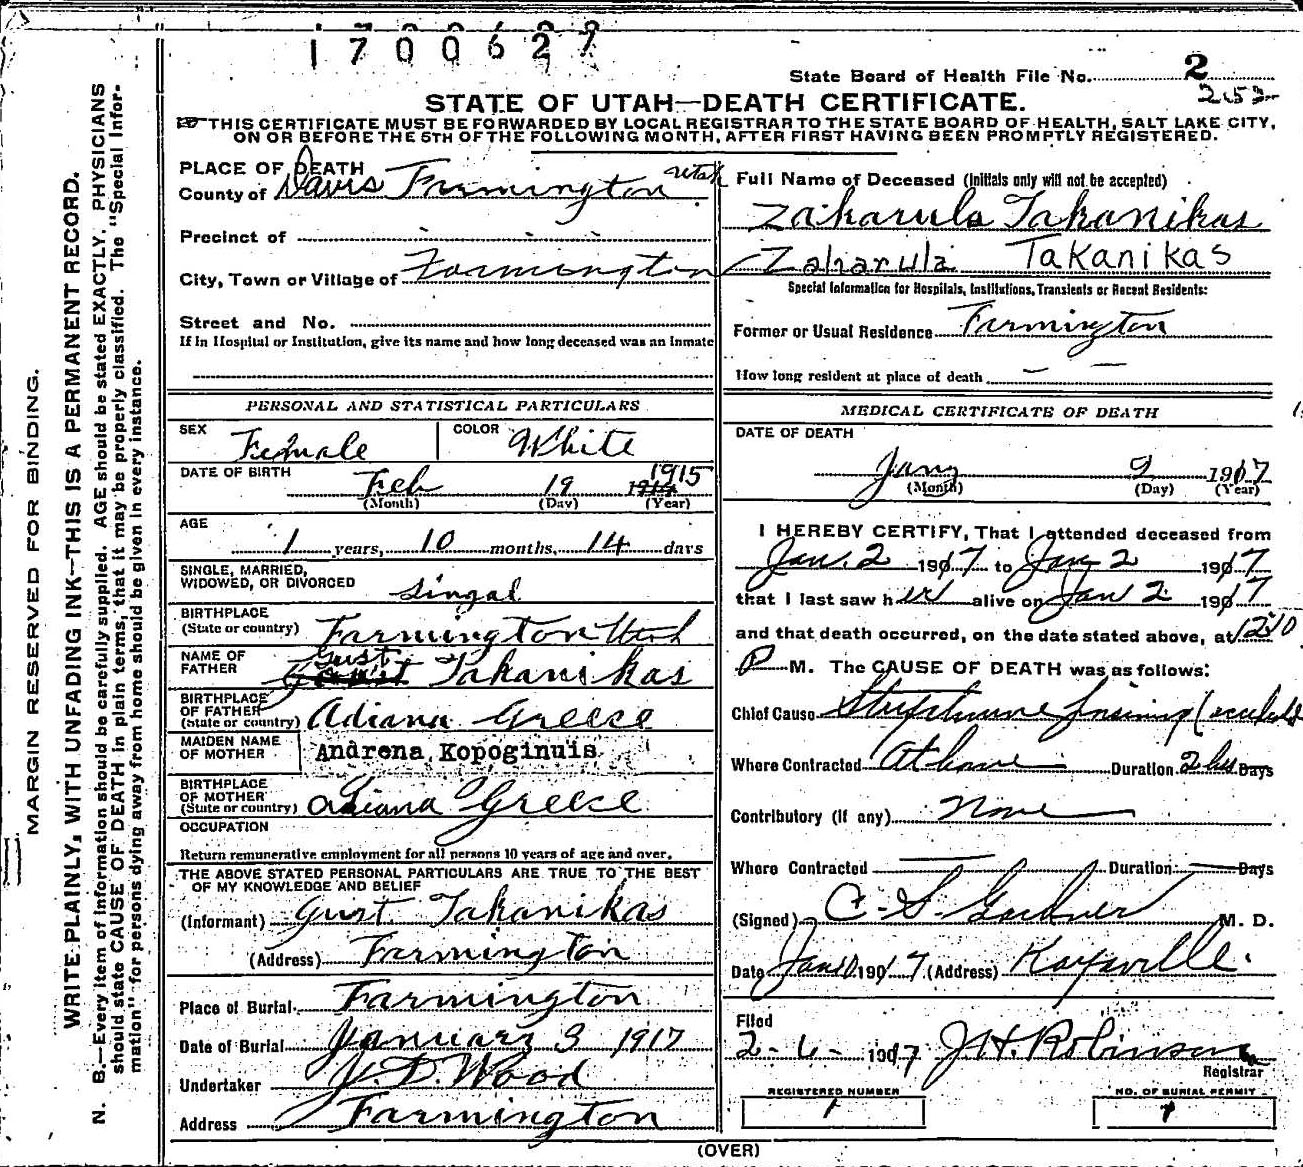 1700627
State Board of Health File No. 2
252
STATE OF UTAH—DEATH CERTIFICATE.
THIS CERTIFICATE MUST BE FORWARDED BY LOCAL REGISTRAR TO THE STATE BOARD OF HEALTH, SALT LAKE CITY,
ON OR BEFORE THE 5TH OF THE FOLLOWING MONTH, AFTER FIRST HAVING BEEN PROMPTLY REGISTERED.
MARGIN RESERVED FOR BINDING.
WRITE PLAINLY, WITH UNFADING INK—THIS IS A PERMANENT RECORD.
N. B.—Every item of information should be carefully supplied. AGE should be stated EXACTLY. PHYSICIANS
should state CAUSE OF DEATH in plain terms, that it may be properly classified. The "Special Infor-
mation" for persons dying away from home should be given in every instance.
PLACE OF DEATH
County of Davis Farmington Utah
Precinct of
City, Town or Village of Farmington
Street and No.
If in Hospital or Institution, give its name and how long deceased was an inmate
PERSONAL AND STATISTICAL PARTICULARS
SEX Female COLOR White
DATE OF BIRTH Feb 19 1915
(Month) (Day) (Year)
AGE
1 years, 10 months, 14 days
SINGLE, MARRIED,
WIDOWED, OR DIVORCED Singal
BIRTHPLACE
(State or country) Farmington Utah
NAME OF
FATHER Gust Takanikas
BIRTHPLACE
OF FATHER
(State or country) Adiana Greece
MAIDEN NAME
OF MOTHER Andrena Kopoginuis
BIRTHPLACE
OF MOTHER
(State or country) Adiana Greece
OCCUPATION
Return remunerative employment for all persons 10 years of age and over.
THE ABOVE STATED PERSONAL PARTICULARS ARE TRUE TO THE BEST
OF MY KNOWLEDGE AND BELIEF
(Informant) Gust Takanikas
(Address) Farmington
Place of Burial Farmington
Date of Burial January 3 1917
Undertaker Wood
Address Farmington
Full Name of Deceased (Initials only will not be accepted)
Zakarula Takanikas
Zaharula Takanikas
Special Information for Hospitals, Institutions, Transients or Recent Residents:
Former or Usual Residence Farmington
How long resident at place of death
MEDICAL CERTIFICATE OF DEATH
DATE OF DEATH
Jany 2 1917
(Month) (Day) (Year)
I HEREBY CERTIFY, That I attended deceased from
Jan. 2 1907 to Jan 2 1907
that I last saw her alive on Jan 2 1907
and that death occurred, on the date stated above, at
P M. The CAUSE OF DEATH was as follows:
Chief Cause
Where Contracted At home Duration 2 hrs Days
Contributory (if any) None
Where Contracted Duration Days
(Signed) C. S. M. D.
Date Jan 1907 (Address) Kaysville.
Filed
2-6-1907 J. H. Robinson
Registrar
REGISTERED NUMBER
1
NO. OF BURIAL PERMIT
1
(OVER)